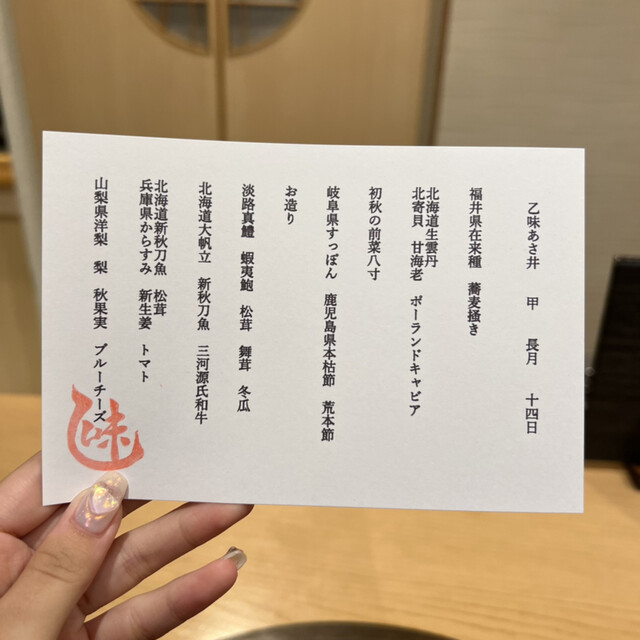 乙味あさ井　甲　長月　十四日
福井県在来種　蕎麦掻き
北海道生雲丹
北寄貝　甘海老　ポーランドキャビア
初秋の前菜八寸
岐阜県すっぽん　鹿児島県本枯節　荒本節
お造り
淡路真鱧　蝦夷鮑　松茸　舞茸　冬瓜
北海道大帆立　新秋刀魚　三河源氏和牛
北海道新秋刀魚　松茸
兵庫県からすみ　新生姜　トマト
山梨県洋梨　梨　秋果実　ブルーチーズ
乙味